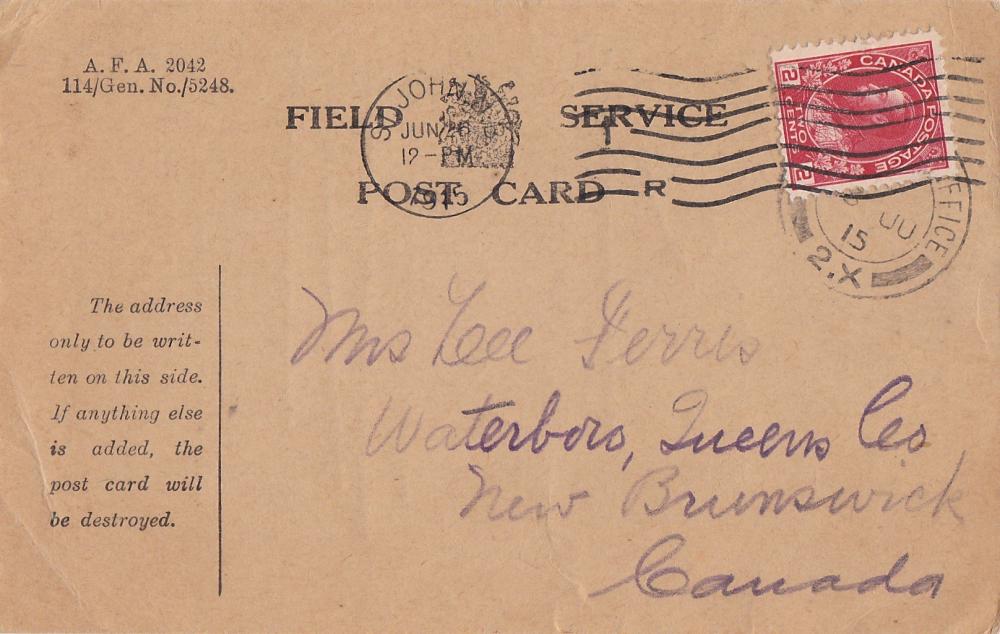 A. F. A. 2042
114/Gen. No./5248.
FIELD SERVICE
POST CARD
ST JOHN N.B.
JUN 26
12-PM
1915
R
CANADA POSTAGE
2 TWO CENTS 2
OFFICE
JU
15
2.X
The address
only to be writ-
ten on this side.
If anything else
is added, the
post card will
be destroyed.
Mrs Lee Ferris
Waterboro, Queens Co
New Brunswick
Canada